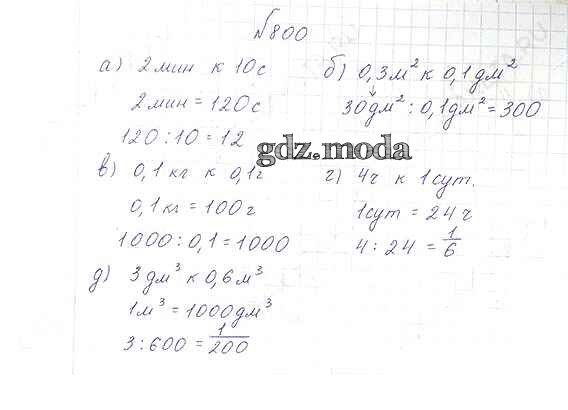 №800
а) 2мин к 10с
2мин = 120с
120 : 10 = 12
б) 0,3м² к 0,1дм²
30дм² : 0,1дм² = 300
gdz.moda
в) 0,1кг к 0,1г
0,1кг = 100г
1000 : 0,1 = 1000
г) 4ч к 1сут.
1сут = 24ч
4 : 24 = 1/6
д) 3дм³ к 0,6м³
1м³ = 1000дм³
3 : 600 = 1/200